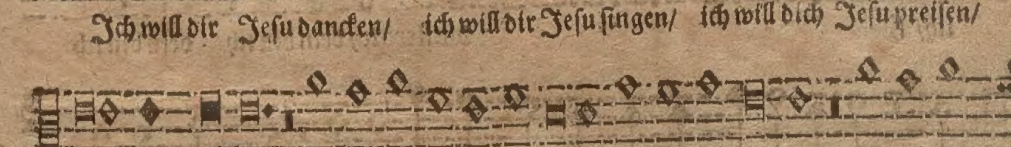 Ich will dir Jesu dancken/ ich will dir Jesu singen/ ich will dich Jesu preisen/